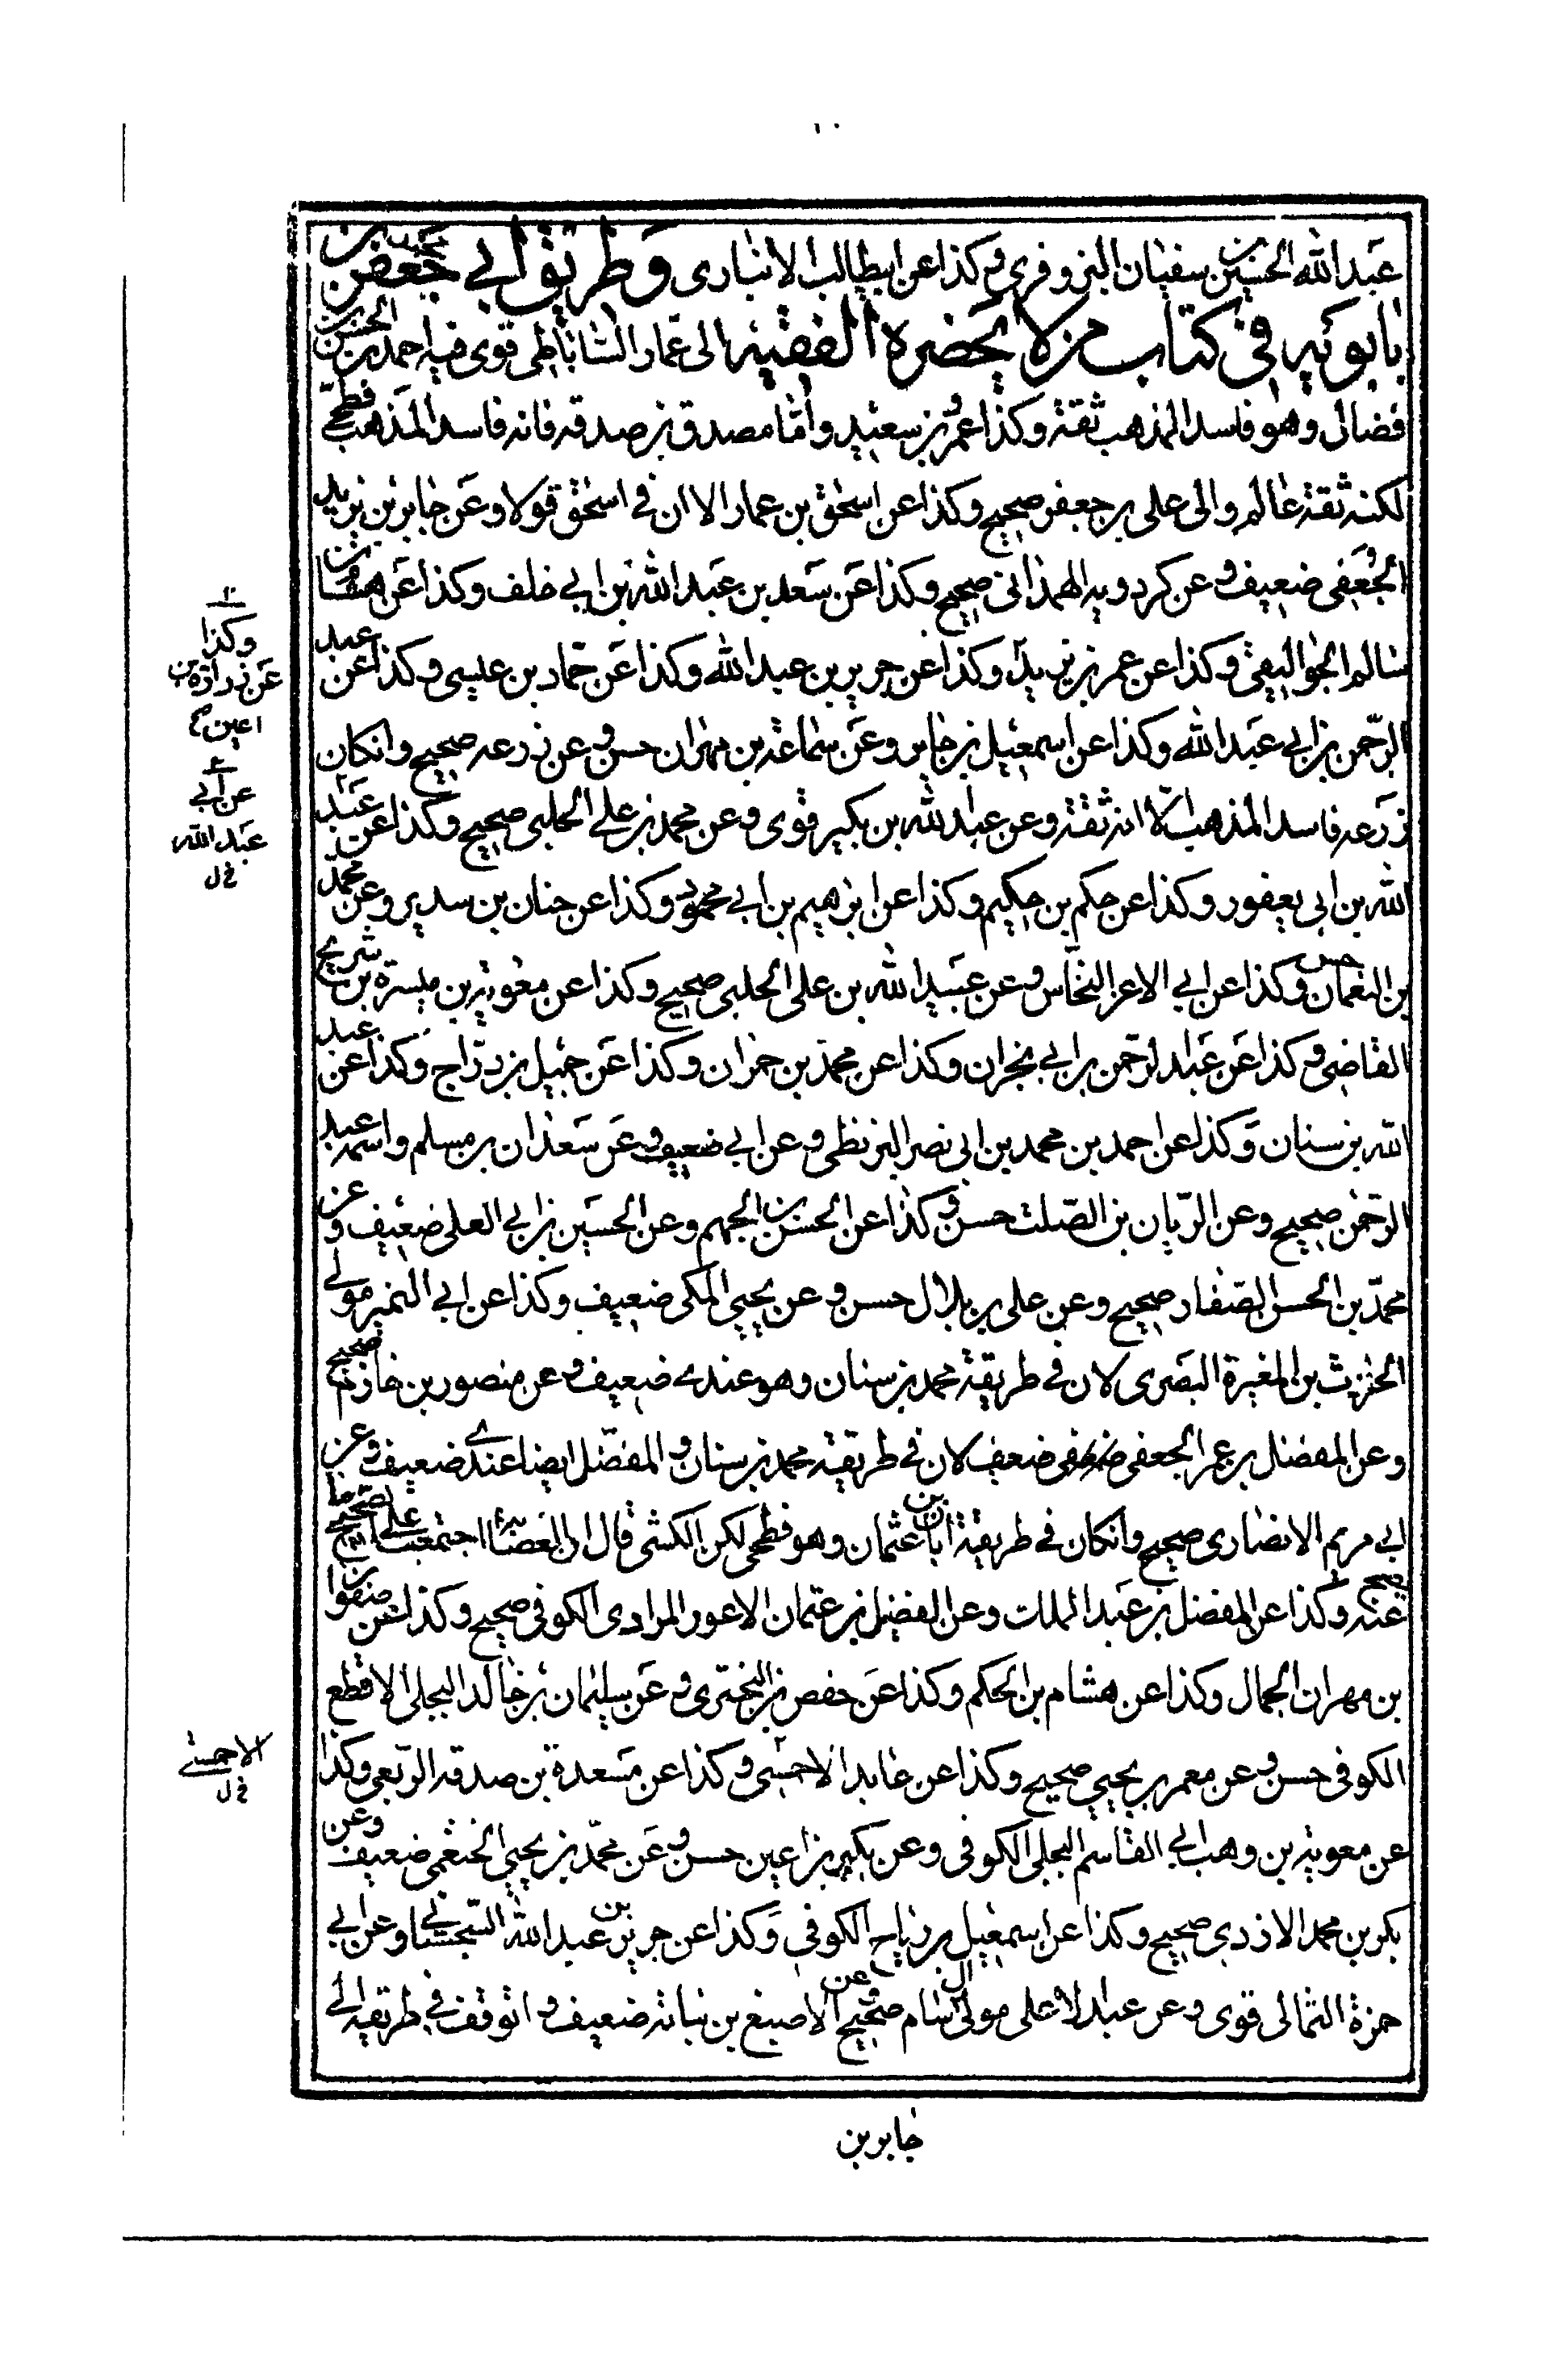 عبد الله الحسين بن سفيان البزوفرى وكذا عن ابيطالب الانبارى وطريق ابي جعفر محمد بن
بابويه في كتاب من لا يحضره الفقيه الى عمار الساباطى قوى فيه احمد بن الحسن بن
فضال وهو فاسد المذهب ثقة وكذا عمرو بن سعيد واما مصدق بن صدقه فانه فاسد المذهب فطحى
لكنه ثقة عالم والى على بن جعفر صحيح وكذا عن اسحق بن عمار الا ان في اسحق قولا وعن جابر بن يزيد
الجعفى ضعيف وعن كردويه الهمذانى صحيح وكذا عن سعد بن عبد الله بن ابي خلف وكذا عن هشام بن
سالم الجواليقى وكذا عن عمر بن يزيد وكذا عن حريز بن عبد الله وكذا عن حماد بن عيسى وكذا عن عبد
الرحمن بن ابي عبد الله وكذا عن اسمعيل بن جابر وعن سماعة بن مهران حسن وعن زرعه صحيح وانكان
زرعه فاسد المذهب الا انه ثقة وعن عبد الله بن بكير قوى وعن محمد بن على الحلبى صحيح وكذا عن عبد
الله بن ابى يعفور وكذا عن حكم بن حكيم وكذا عن ابرهيم بن ابي محمود وكذا عن حنان بن سدير وعن محمد
بن النعمان حسن وكذا عن ابي الاعز النخاس وعن عبيد الله بن على الحلبى صحيح وكذا عن معوية بن ميسرة بن شريح
القاضى وكذا عن عبد الرحمن بن ابي نجران وكذا عن محمد بن حمران وكذا عن جميل بن دراج وكذا عن عبد
الله بن سنان وكذا عن احمد بن محمد بن ابى نصر البزنطى وعن ابي ضعيف وعن سعدان بن مسلم واسمه عبد
الرحمن صحيح وعن الريان بن الصلت حسن وكذا عن الحسن بن الجهم وعن الحسين بن ابي العلى ضعيف وعن
محمد بن الحسن الصفار صحيح وعن على بن بلال حسن وعن يحيى المكى ضعيف وكذا عن ابي النمير مولى
الحرث بن المغيرة البصرى لان في طريقة محمد بن سنان وهو عندى ضعيف وعن منصور بن حازم صحيح
وعن المفضل بن عمر الجعفى ضعيف لان في طريقه محمد بن سنان والمفضل ايضا عندى ضعيف وعن
ابي مريم الانصارى صحيح وانكان في طريقة ابان بن عثمان وهو فطحى لكن الكشى قال ان العصابة اجتمعت على تصحيح ما
صح عنه وكذا عن المفضل بن عبد الملك وعن الفضيل بن عثمان الاعور المرادى الكوفى صحيح وكذا عن صفوان
بن مهران الجمال وكذا عن هشام بن الحكم وكذا عن حفص بن البخترى وعن سليمان بن خالد البجلى الاقطع
الكوفى حسن وعن معمر بن يحيى صحيح وكذا عن عابد الاحمسى وكذا عن مسعدة بن صدقه الربعى وكذا
عن معوية بن وهب ابي القاسم البجلى الكوفى وعن بكير بن اعين حسن وعن محمد بن يحيى الخثعمى ضعيف وعن
بكر بن محمد الازدى صحيح وكذا عن اسمعيل بن رباح الكوفى وكذا عن حريز بن عبد الله السجستانى وعن ابي
حمزة الثمالى قوى وعن عبد الاعلى مولى ال سام صحيح وعن الاصبغ بن نباتة ضعيف واتوقف في طريقه الى
جابر بن
وكذا
عن زرارة بن
اعين صح
عن ابي
عبد الله
خ ل
الاحمسى
خ ل